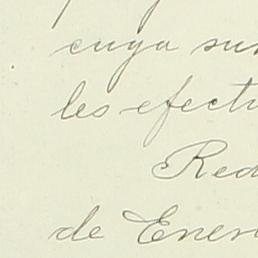 cuya su
les efectu
Red
de Ener